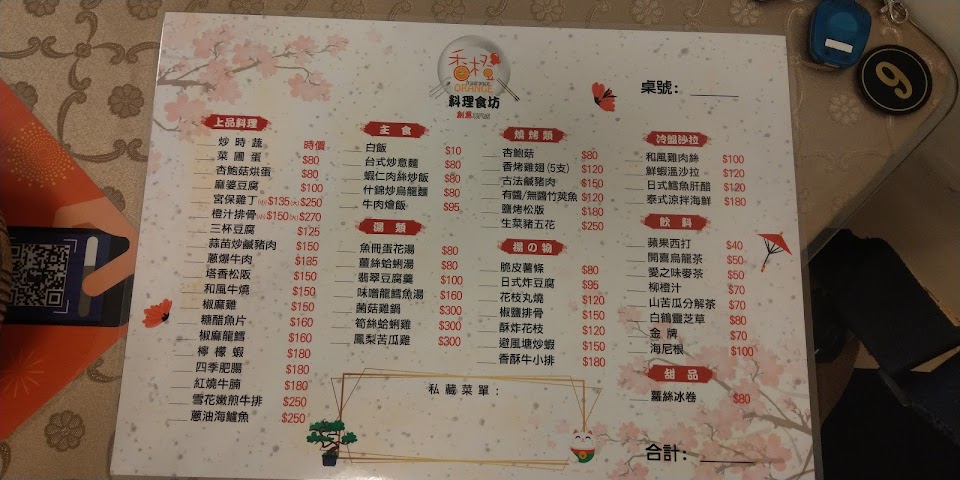 香橙
ORANGE
料理食坊
桌號：
9
上品料理
炒時蔬 時價
菜圃蛋 $80
杏鮑菇烘蛋 $80
麻婆豆腐 $100
宮保雞丁(小)$135(大)$250
橙汁排骨(小)$150(大)$270
三杯豆腐 $125
蒜苗炒鹹豬肉 $150
蔥爆牛肉 $185
塔香松阪 $150
和風牛燒 $150
椒麻雞 $150
糖醋魚片 $160
椒麻龍鱈 $160
檸檬蝦 $180
四季肥腸 $180
紅燒牛腩 $180
雪花嫩煎牛排 $250
蔥油海鱸魚 $250
主食
白飯 $10
台式炒意麵 $80
蝦仁肉絲炒飯 $80
什錦炒烏龍麵 $80
牛肉燴飯 $95
湯類
魚冊蛋花湯 $80
薑絲蛤蜊湯 $80
翡翠豆腐羹 $100
味噌龍鱈魚湯 $160
菌菇雞鍋 $300
筍絲蛤蜊雞 $300
鳳梨苦瓜雞 $300
燒烤類
杏鮑菇 $80
香烤雞翅(5支) $120
古法鹹豬肉 $150
有醬/無醬竹莢魚 $120
鹽烤松版 $180
生菜豬五花 $250
揚の物
脆皮薯條 $80
日式炸豆腐 $95
花枝丸燒 $120
椒鹽排骨 $150
酥炸花枝 $120
避風塘炒蝦 $150
香酥牛小排 $180
冷盤沙拉
和風雞肉絲 $100
鮮蝦溫沙拉 $120
日式鱈魚肝醋 $120
泰式涼拌海鮮 $180
飲料
蘋果西打 $40
開喜烏龍茶 $50
愛之味麥茶 $50
柳橙汁 $70
山苦瓜分解茶 $70
白鶴靈芝草 $80
金牌 $70
海尼根 $100
甜品
薑絲冰卷 $80
私藏菜單：
合計：